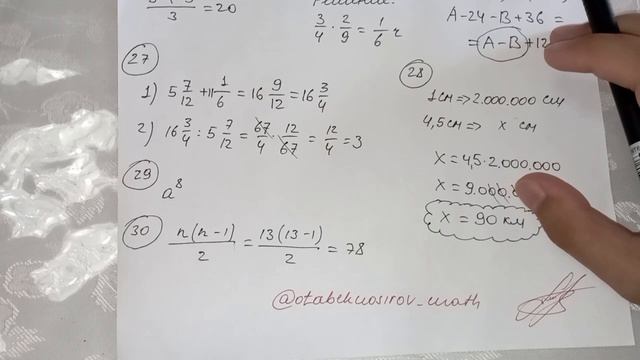 3 = 20
3/4 · 2/9 = 1/6 ч
A-24-B+36 =
= A-B+12
27
1) 5 7/12 + 11 1/6 = 16 9/12 = 16 3/4
2) 16 3/4 : 5 7/12 = 67/4 · 12/67 = 12/4 = 3
28
1 см => 2.000.000 см
4,5 см => x см
X = 4,5·2.000.000
X = 9.000
X = 90 км
29
a⁸
30
n(n-1)/2 = 13(13-1)/2 = 78
@otabeknosirov_math